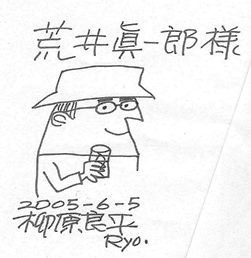 荒井眞一郎様
2005-6-5
柳原良平
Ryo.